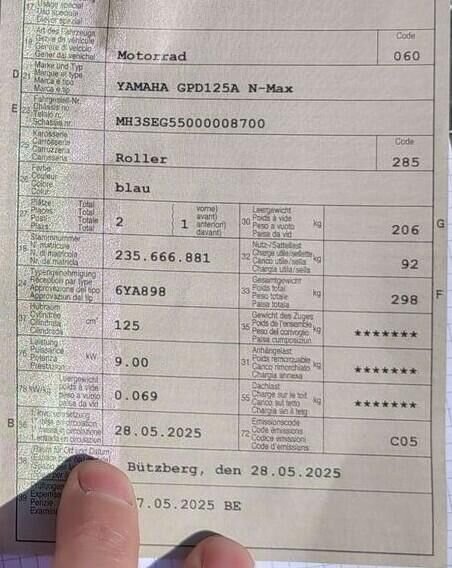 17 Usage spécial
Uso speciale
Diever spezial
Art des Fahrzeugs
Genre de véhicule
Genere di veicolo
Gener dal vehichel
Motorrad
Code
060
D 21 Marke und Typ
Marque et type
Marca e tipo
Marca e tip
YAMAHA GPD125A N-Max
E 23 Fahrgestell-Nr.
Châssis no
Telaio n.
Schassis nr.
MH3SEG55000008700
25 Karosserie
Carrosserie
Carrozzeria
Carossaria
Roller
Code
285
26 Farbe
Couleur
Colore
Colur
blau
27 Plätze: Total
Places: Total
Posti: Totale
Plazs: Total
2
1
vorne)
avant)
anteriori)
davant)
30 Leergewicht
Poids à vide
Peso a vuoto
Paisa da vid
kg
206
G
18 Stammnummer
N. matricule
N. di matricola
Nr. da matricla
235.666.881
32 Nutz-/Sattellast
Charge utile/sellette
Carico utile/sella
Chargia utila/sella
kg
92
24 Typengenehmigung
Réception par type
Approvazione del tipo
Approvaziun dal tip
6YA898
33 Gesamtgewicht
Poids total
Peso totale
Paisa totala
kg
298
F
37 Hubraum
Cylindrée
Cilindrata
Cilindrada
cm³
125
35 Gewicht des Zuges
Poids de l'ensemble
Peso del convoglio
Paisa cumposiziun
kg
*******
76 Leistung
Puissance
Potenza
Prestaziun
kW
9.00
31 Anhängelast
Poids remorquable
Peso rimorchiato
Chargia annexa
kg
*******
78 kW/kg
Leergewicht
poids à vide
peso a vuoto
paisa da vid
0.069
55 Dachlast
Charge sur le toit
Carico sul tetto
Chargia sin il tetg
kg
*******
B 36 1. Inverkehrsetzung
1re mise en circulation
1. messa in circolazione
1. entrada en circulaziun
28.05.2025
72 Emissionscode
Code émissions
Codice emissioni
Code d'emissiuns
C05
38 (Raum für Ort und Datum)
Bützberg, den 28.05.2025
39 Prüfungen
Expertises
Perizie
7.05.2025 BE